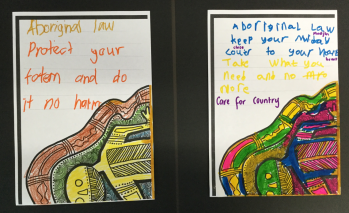 Aboriginal law
Protect your
totem and do
it no harm
Aboriginal Law
keep your
close to your heart
Take what you
need and no
more
Care for Country